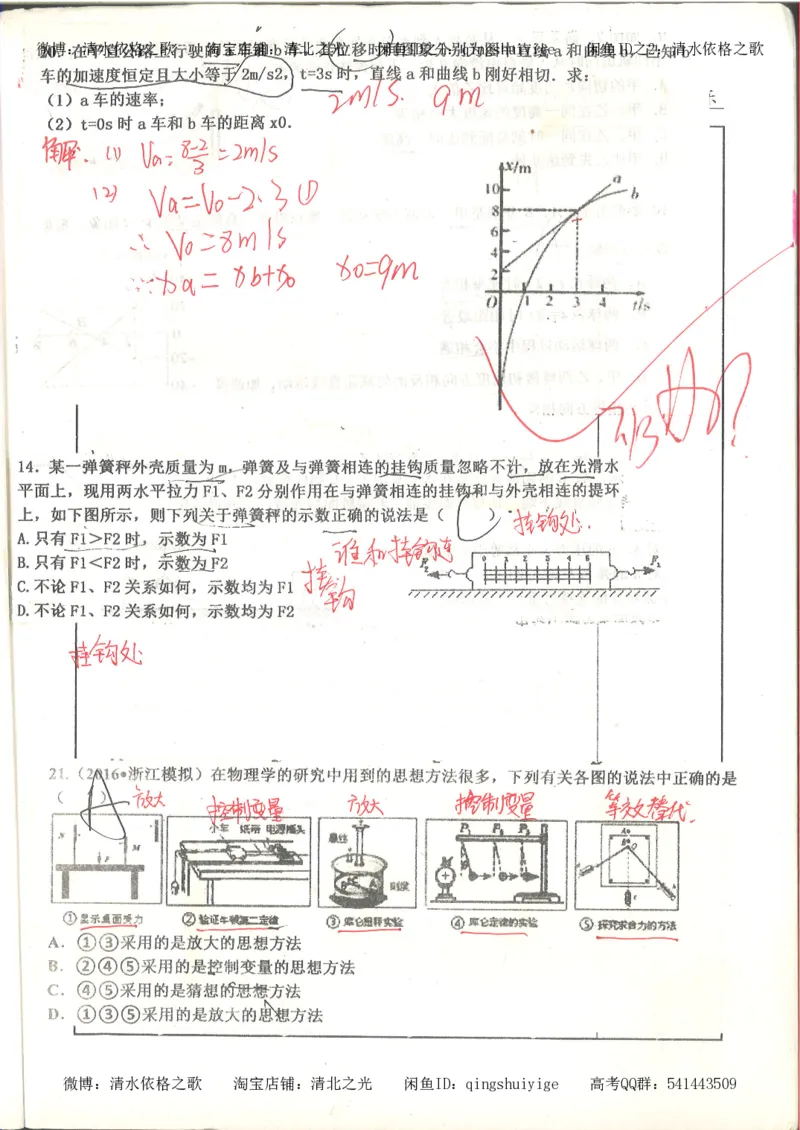 微博:清水依格之歌 淘宝店铺:清北之光
20.在平直公路上行驶的a车和b车,其位移时间图象分别为图中直线a和曲线b.已知b
车的加速度恒定且大小等于2m/s2,t=3s时,直线a和曲线b刚好相切.求:
(1)a车的速率;
(2)t=0s时a车和b车的距离x0.
2m/s. 9m
解.(1) Va=8-2/3=2m/s
(2) Va=V0-2·3 ①
∴V0=8m/s
∵xa=xb+x0 x0=9m
x/m
a
b
10
8
6
4
2
O 1 2 3 4 t/s
14.某一弹簧秤外壳质量为m,弹簧及与弹簧相连的挂钩质量忽略不计,放在光滑水
平面上,现用两水平拉力F1、F2分别作用在与弹簧相连的挂钩和与外壳相连的提环
上,如下图所示,则下列关于弹簧秤的示数正确的说法是( )
挂钩处.
A.只有F1>F2时,示数为F1
B.只有F1<F2时,示数为F2
C.不论F1、F2关系如何,示数均为F1
D.不论F1、F2关系如何,示数均为F2
谁和挂钩连
挂钩
F2 0 1 2 3 4 5 F1
挂钩处
21.(2016•浙江模拟)在物理学的研究中用到的思想方法很多,下列有关各图的说法中正确的是
( )
A
放大 控制变量 放大 控制变量 等效替代.
N M F
小车 纸带 电源插头
P1 P2 P3
①显示桌面受力 ②验证牛顿第二定律 ③库仑扭秤实验 ④库仑定律的实验 ⑤探究求合力的方法
A.①③采用的是放大的思想方法
B.②④⑤采用的是控制变量的思想方法
C.④⑤采用的是猜想的思想方法
D.①③⑤采用的是放大的思想方法
微博:清水依格之歌 淘宝店铺:清北之光 闲鱼ID:qingshuiyige 高考QQ群:541443509